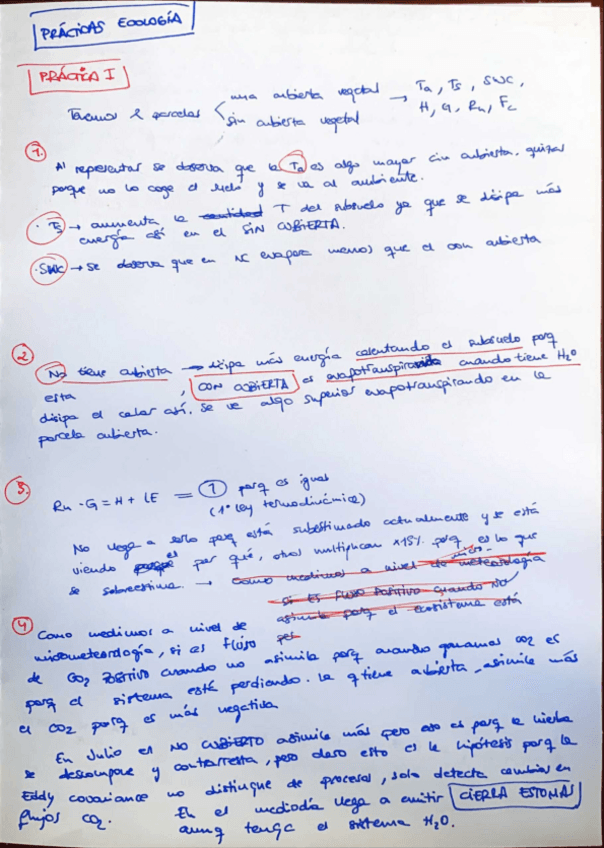 PRÁCTICAS ECOLOGÍA
PRÁCTICA I
Tenemos 2 parcelas una cubierta vegetal → Ta, Ts, SWC,
sin cubierta vegetal H, G, Rn, Fc
1.
Al representar se observa que la Ta es algo mayor sin cubierta. quizás
porque no lo coge el suelo y se va al ambiente.
· Ts → aumenta la cantidad T del subsuelo ya que se disipa más
energía así en el SIN CUBIERTA.
· SWC → se observa que en NC evapora menos que el con cubierta
2
No tiene cubierta → disipa más energía calentando el subsuelo porq
esta , CON CUBIERTA es evapotranspirando cuando tiene H2O
disipa el calor así. Se ve algo superior evapotranspirando en la
parcela cubierta.
3.
Rn - G = H + LE = 1 porq es igual
(1ª ley termodinámica)
No llega a serlo porq está subestimado actualmente y se está
viendo por qué, otros multiplican x15% porq es lo que
se sobreestima. → Como medimos a nivel de micrometeorología
si ES FLUJO POSITIVO CUANDO NO
asimila porq el ecosistema está
per
4
Como medimos a nivel de
micrometeorología, si es flujo
de CO2 POSITIVO cuando no asimila porq cuando ganamos CO2 es
porq el sistema está perdiendo. La q tiene cubierta, asimila más
el CO2 porq es más negativa
En Julio el NO CUBIERTO asimila más pero eso es porq la hierba
se descompone y contrarresta, pero claro esto es la hipótesis porq la
Eddy covariance no distingue de procesos, solo detecta cambios en
flujos CO2. En el mediodía llega a emitir CIERRA ESTOMAS
aunq tenga el sistema H2O.